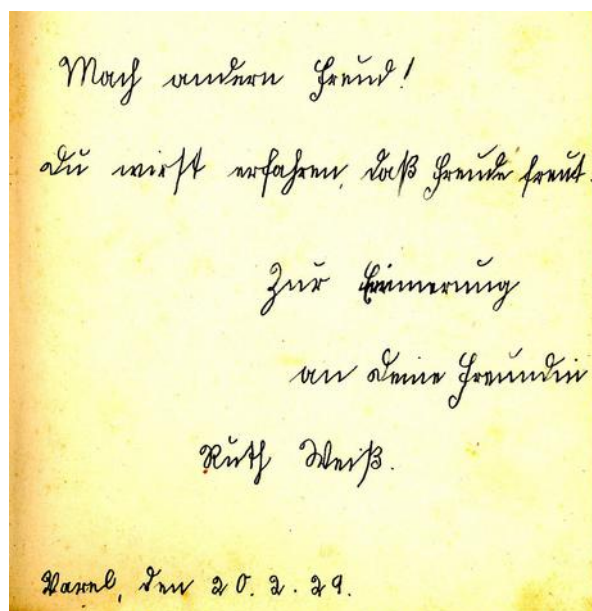 Mach andern Freud!
Du wirst erfahren, daß Freude freut.
Zur Erinnerung
an Deine Freundin
Ruth Weiß.
Varel, den 20.2.29.